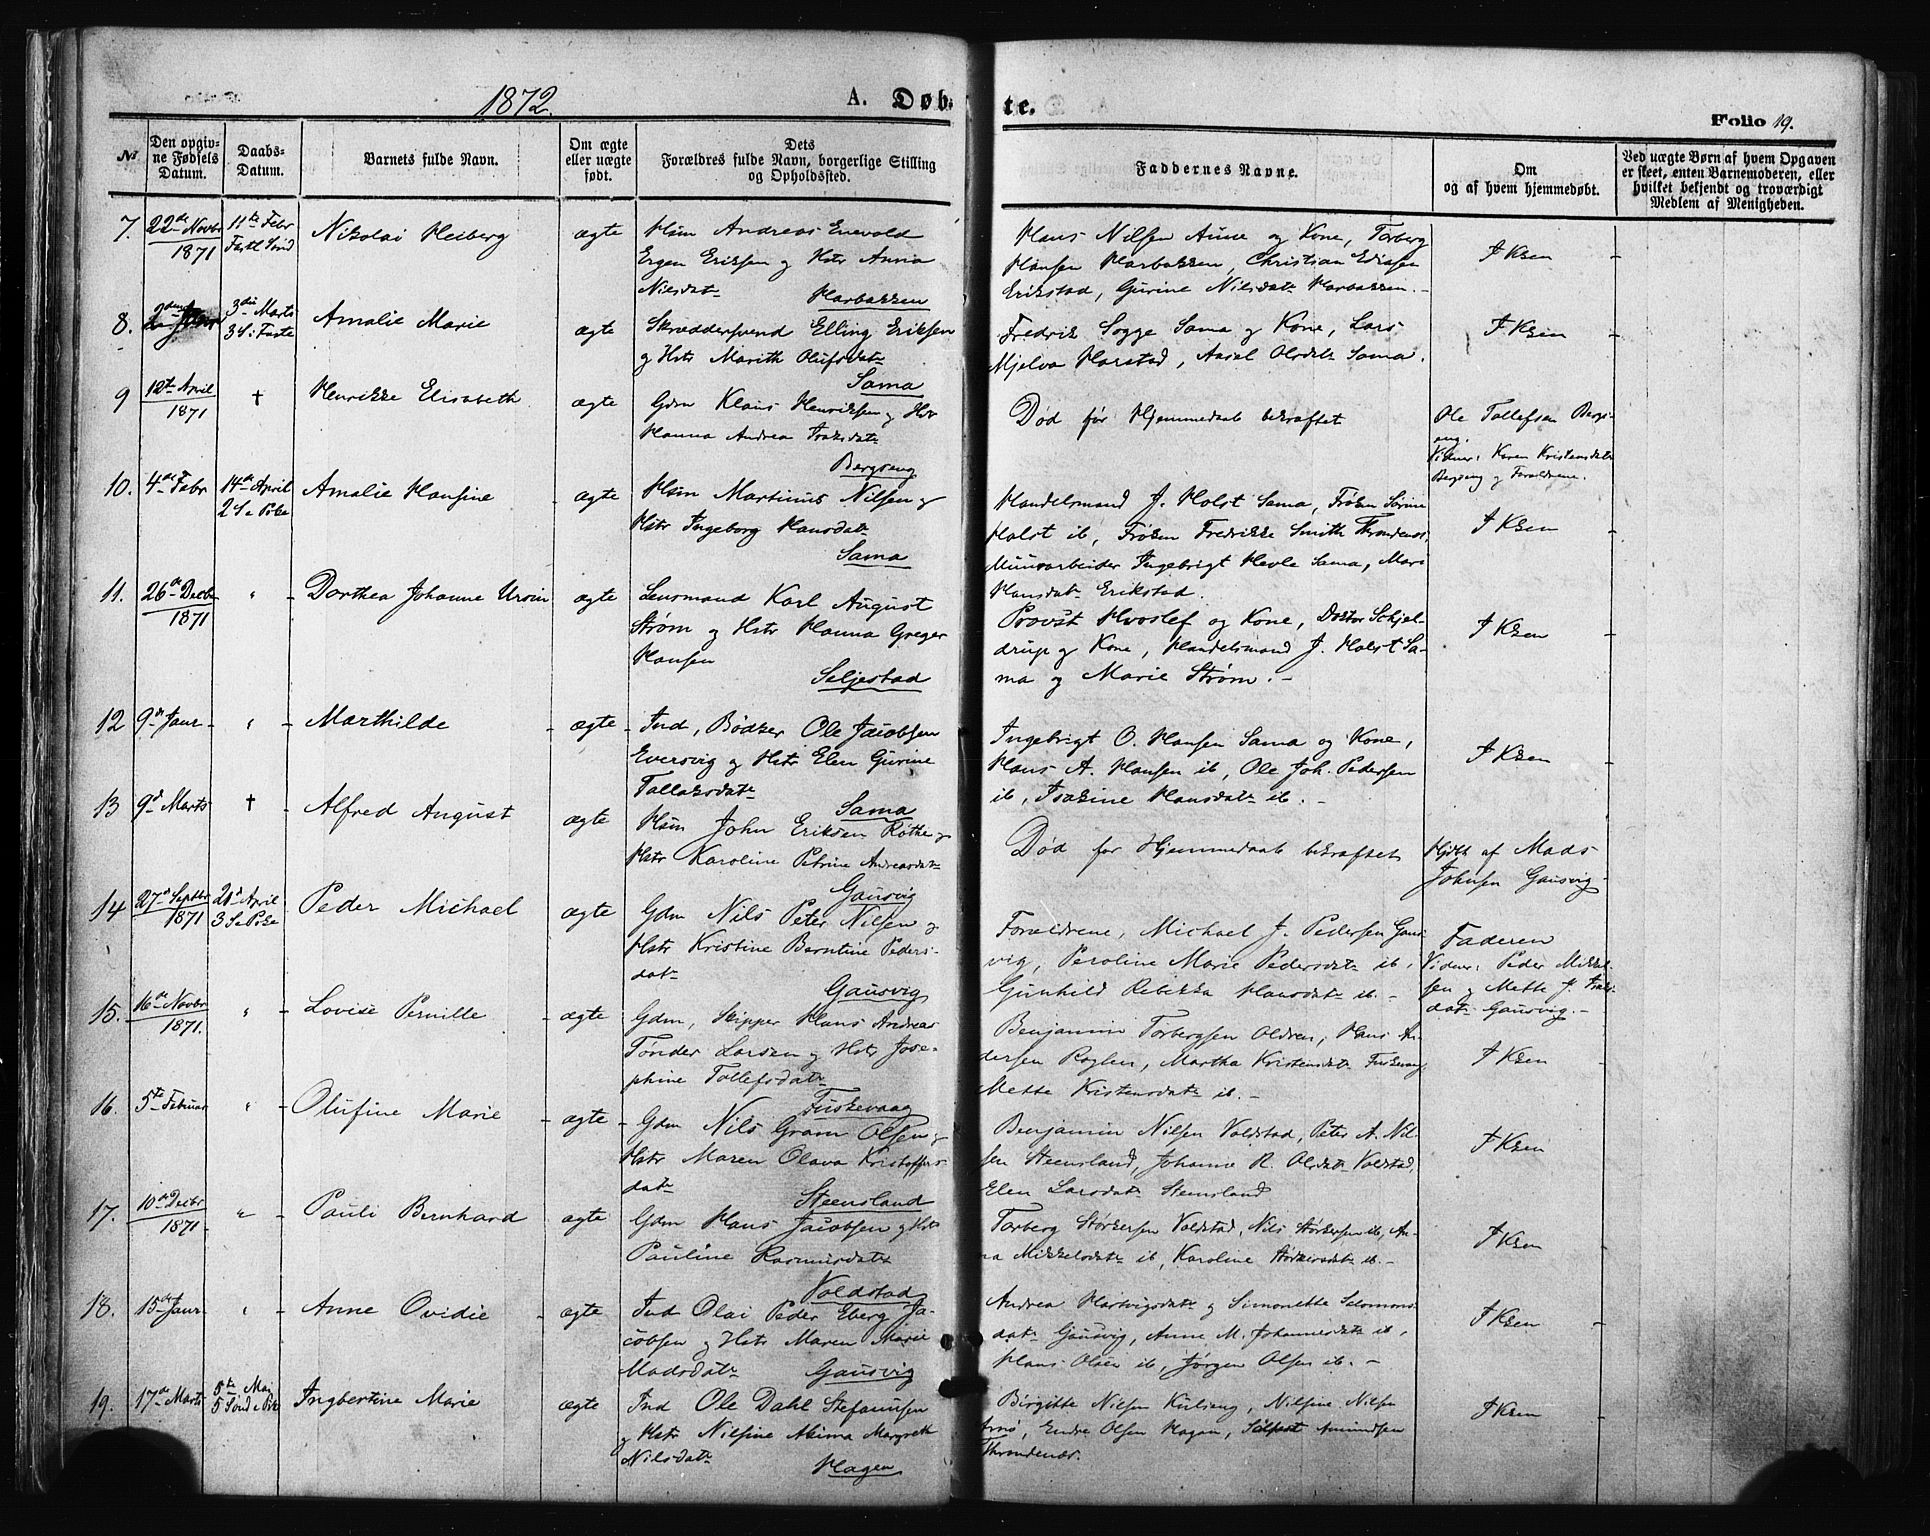 1872.
A. Døbte.
Folio 19.
№
Den opgivne Fødsels Datum.
Daabs-Datum.
Barnets fulde Navn.
Om ægte eller uægte født.
Dets Forældres fulde Navn, borgerlige Stilling og Opholdssted.
Faddernes Navne.
Om og af hvem hjemmedøbt.
Ved uægte Børn af hvem Opgaven er skeet, enten Barnemoderen, eller hvilket bekjendt og troværdigt Medlem af Menigheden.
7. 22de Novbr 1871 11te Febr Fastl Sönd Nikolai Heiberg ægte Hsm Andreas Enevold
Ergen Eriksen og Hstr Anna
Nilsdatr Harbakken
Hans Nilsen Aune og Kone, Torberg
Hansen Harbakken, Christian Eriksen
Erikstad, Gurine Nilsdatr Harbakken. -
I Ksen -
8. 3die Marts 3 S: i Faste Amalie Marie ægte Skrædersvend Elling Eriksen
og Hstr Marith Olufsdatr
Sama
Fredrik Sogge Sama og Kone, Lars
Mjelva Harstad, Aasel Olsdatr Sama.
I Ksen -
9 12te April 1871 † Henrikke Elisabeth ægte Gdm Klaus Henriksen og Hstr
Hanna Andrea Isaksdatr
Bergseng
Død før Hjemmedaab bekræftet
Ole Tollefsen Bergs-
eng.
Vidner: Karen Kristensdatr
Bergseng og Forældrene.
10. 4de Febr 14de April 2 S e Paske Amalie Hansine - ægte Hsm Martinus Nilsen og
Hstr Ingeborg Hansdatr
Sama
Handelsmand J. Holst Sama, Frøken Sørine
Holst ib, Frøken Fredrikke Smith Throndenæs,
Muurarbeider Ingebrigt Hevle Sama, Mari
Hansdatr Erikstad.
I Ksen -
11. 26de Decbr 1871 " - Dorthea Johanne Ursin ægte Lensmand Karl August
Strøm og Hstr Hanna Greger
Hansen
Seljestad
Provst Hvoslef og Kone, Doktor Schjel-
drup og Kone, Handelsmand J. Holst Sa-
ma og Marie Strøm. -
I Ksen -
12 9de Janr - " - Marthilde - ægte - Ind, Bødker Ole Jacobsen
Eversvig og Hstr Elen Gurine
Tollaksdatr
Sama
Ingebrigt O. Hansen Sama og Kone,
Hans A. Hansen ib, Ole Joh. Pedersen
ib, Isakine Hansdatr ib. -
I Ksen -
13 9de Marts † - Alfred August ægte Hsm John Eriksen Røthe og
Hstr Karoline Petrine Andreasdatr
Gausvig
Død før Hjemmedaab bekræftet
Hjdbt af Mads
Johnsen Gausvig
14 27de Septbr 1871 21de April 3 S e Paske Peder Michael ægte Gdm Nils Peter Nilsen og
Hstr Kristine Berntine Peders-
datr
Gausvig
Forældrene, Michael J. Pedersen Gaus-
vig, Peroline Marie Pedersdatr ib,
Gunhild Rebekka Hansdatr ib. -
Faderen
Vidner: Peder Mikkel-
sen og Mette J.
datr Gausvig. -
15. 16de Novbr 1871. " - Lovise Pernille - ægte Gdm, Skipper Hans Andreas
Tønder Larsen og Hstr Jose-
phine Tollefsdatr
Fuskevaag
Benjamin Torbergsen Oldren, Hans An-
dersen Røglen, Martha Kristensdatr Fuskevaag
Mette Kristensdatr ib. -
I Ksen -
16. 5te Februar " - Olufine Marie - ægte - Gdm Nils Gram Olsen og
Hstr Maren Olava Kristoffers-
datr
Steensland
Benjamin Nilsen Voldstad, Peter A. Nil-
sen Steensland, Johanne R. Olsdatr Voldstad,
Elen Larsdatr Steensland
I Ksen -
17. 10de Decbr 1871 - " - Pauli Bernhard ægte Gdm Hans Jacobsen og Hstr
Pauline Rasmusdatr
Voldstad
Torberg Størkersen Voldstad, Nils Størkersen ib, An-
na Mikkelsdatr ib, Karoline Størkersdatr ib. -
I Ksen -
18. 15de Janr " - Anne Ovidie - ægte Ind Olai Peder Eberg Ja-
cobsen og Hstr Maren Marie
Madsdatr Gausvig
Andrea Hartvigsdatr og Simonette Salomons-
datr Gausvig, Anne M. Johannesdatr ib,
Hans Olsen ib, Jørgen Olsen ib. -
I Ksen -
19. 17de Marts 5te Mai 5 Sönd e Paske Ingbertine Marie ægte Ind Ole Dahl Stefansen
og Hstr Nilsine Akima Margreth
Nilsdatr Hagen
Birgitte Nilsen , Nilsine Nilsen
Arnö, Endre Olsen Hagan, Amundsen
Throndenæs.
I Ksen -